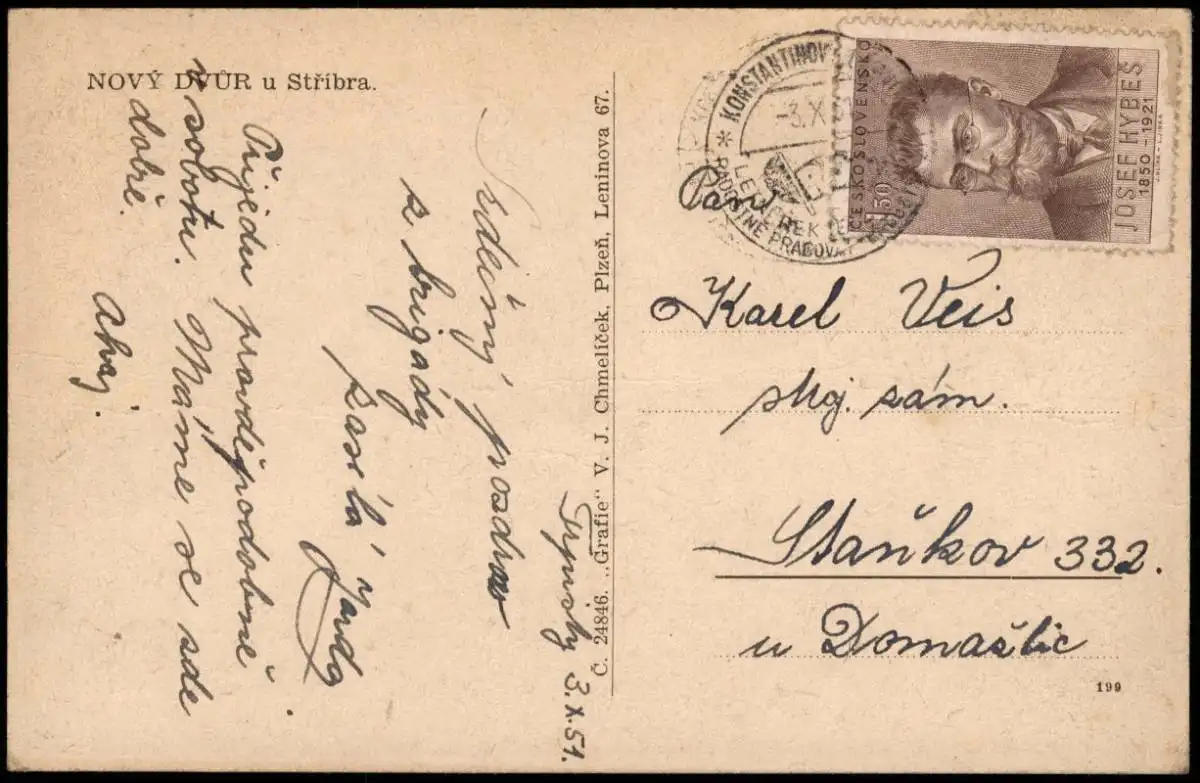 NOVÝ DVŮR u Stříbra.
3.X.51.
Srdečný pozdrav
z brigády
posílá Jarda
Přijedu pravděpodobně
v sobotu. Máme se zde
dobře.
Ahoj.
Č. 24846. „Grafie" V. J. Chmelíček, Plzeň, Leninova 67.
KONSTANTINOV
-3.X.51
RADOSTNĚ PRACOVAT
ČESKOSLOVENSKO
1.50
JOSEF HYBEŠ
1850–1921
Pan
Karel Veis
Staňkov 332.
u Domažlic
199